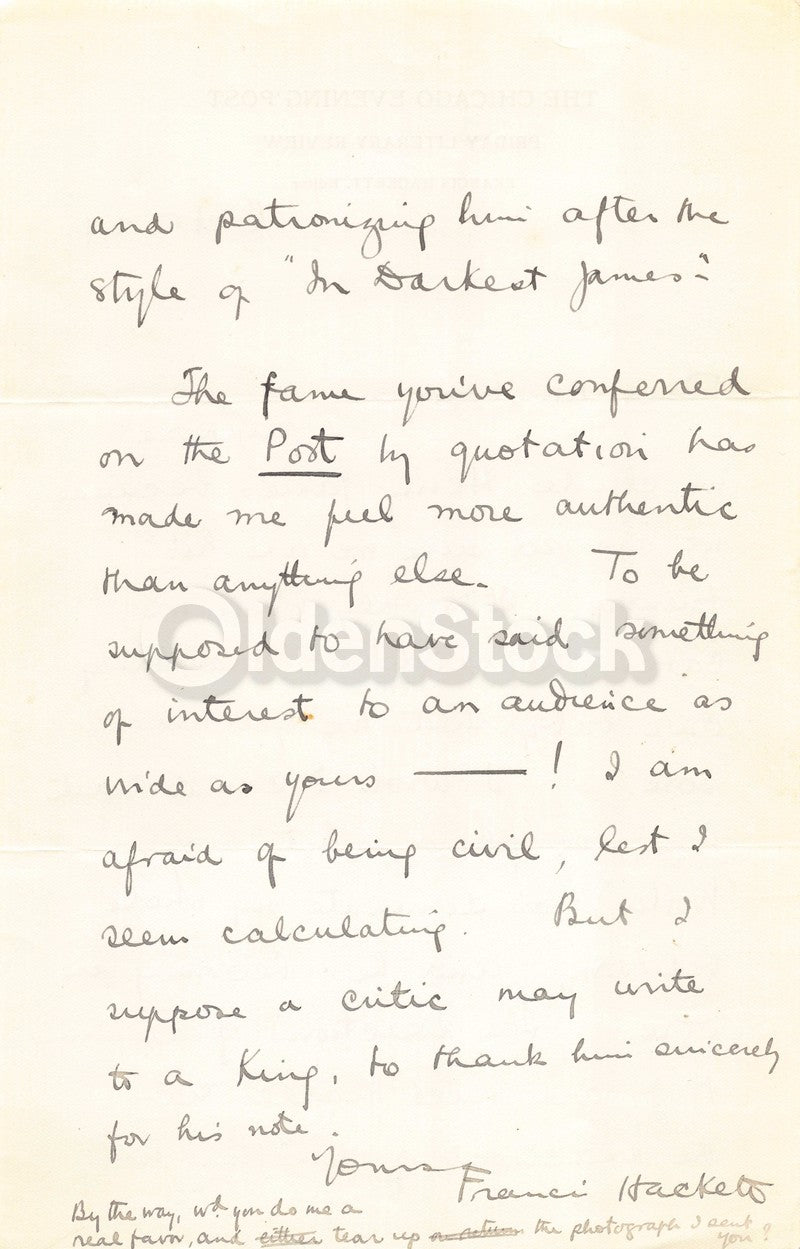 and patronizing him after the
style of "In Darkest James".
The fame you've conferred
on the Post by quotation has
made me feel more authentic
than anything else. To be
supposed to have said something
of interest to an audience as
wide as yours ——— ! I am
afraid of being civil, lest I
seem calculating. But I
suppose a critic may write
to a King, to thank him sincerely
for his note.
Yours
Francis Hackett
By the way, wd. you do me a
real favor, and either tear up or return the photograph I sent
you?
OldenStock
THE CHICAGO EVENING POST
FRIDAY LITERARY REVIEW
FRANCIS HACKETT, Editor